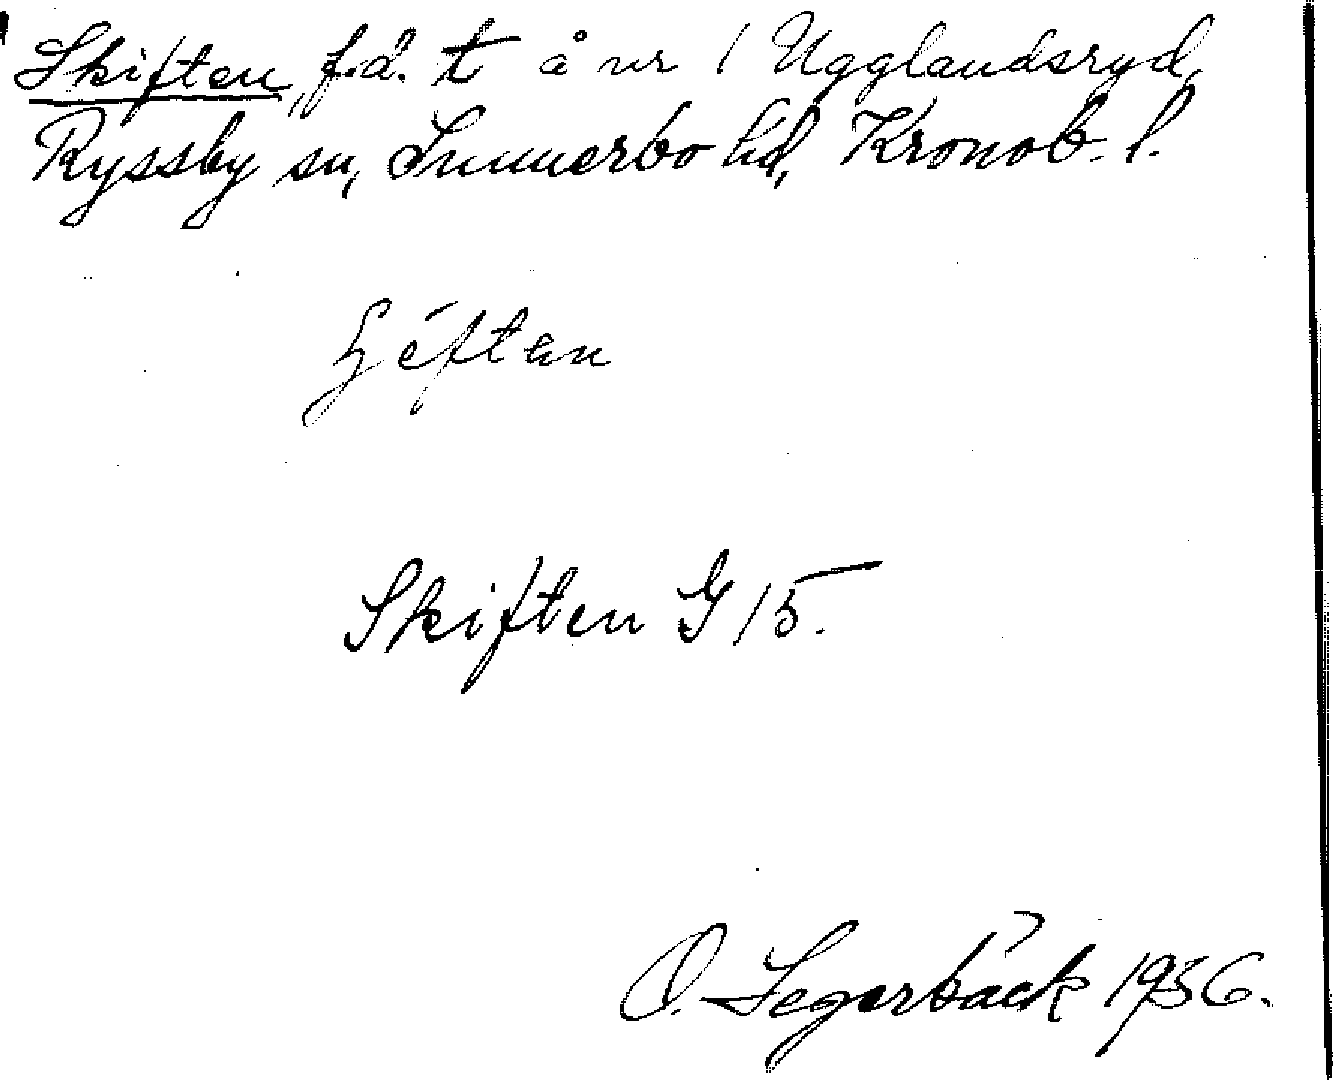 Skiften, f.d. t å nr 1 Ugglandsryd,
Ryssby sn, Sunnerbo hd, Kronob. l.
Skiften G 15.
O. Segerbäck 1936.